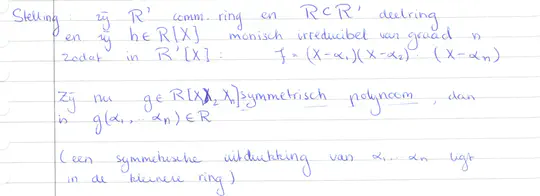 Stelling zij R' comm. ring en R⊂R' deelring
en zij h∈R[X] monisch irreducibel van graad n
zodat in R'[X] : f = (X-α₁)(X-α₂)··(X-αₙ)
Zij nu g∈R[X₁X₂Xₙ] symmetrisch polynoom, dan
is g(α₁,...αₙ)∈R
(een symmetrische uitdrukking van α₁...αₙ ligt
in de kleinere ring)